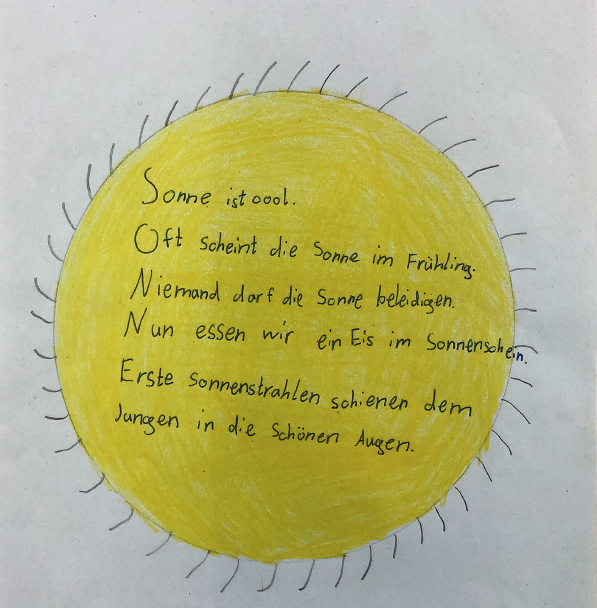 Sonne ist cool.
Oft scheint die Sonne im Frühling.
Niemand darf die Sonne beleidigen.
Nun essen wir ein Eis im Sonnenschein.
Erste Sonnenstrahlen schienen dem
Jungen in die Schönen Augen.